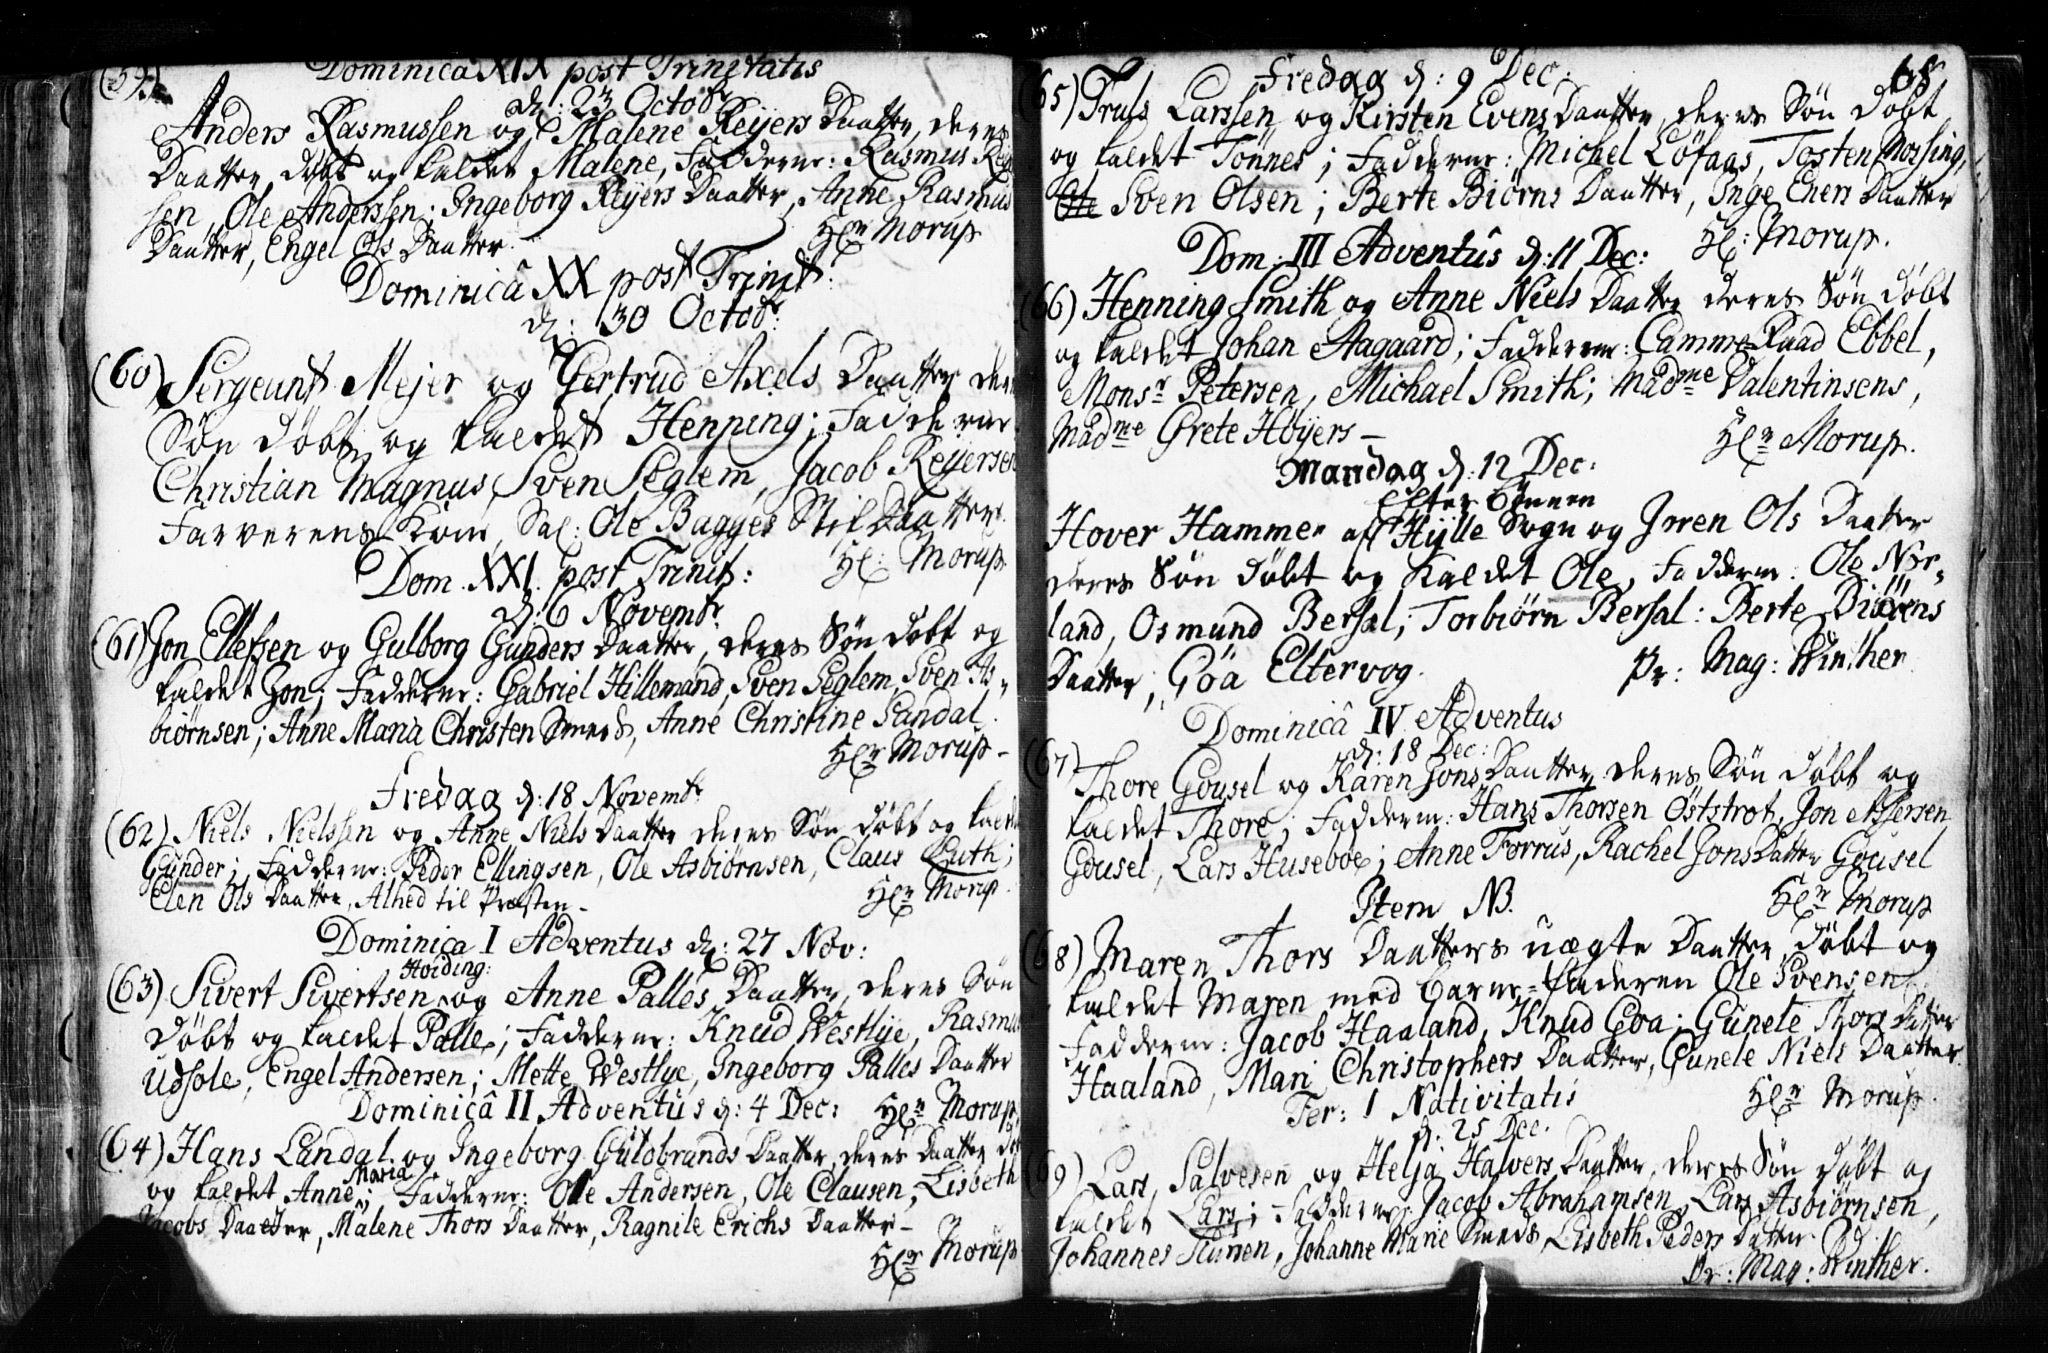 (59)
Dominica XIX post Trinitatis
d: 23 Octobr
Anders Rasmussen og Malene Reijers Daatter, deres
Daatter døbt og kaldet Malene, Fadderne: Rasmus Reij
sen, Ole Anderssen; Ingeborg Reijers Daatter, Anne Rasmus
Daatter, Engel Ols Daatter.
Hr Morup
Dominicâ XX post Trinit:
d: 30 Octobr:
(60) Sergeant Mejer og Gertrud Axels Daatter deres
Søn døbt og kaldet Henning; Fadderne
Christian Magnus, Sven Seglem, Jacob Reijersen
Farverens Kone, Sal: Ole Bagges Stif Daatter.
Hl: Morup
Dom. XXI. post Trinit:
d: 6 Novembr.
(61) Jon Ellefsen og Gulborg Gunders Daatter, deres Søn døbt og
kaldet Jon; Fadderne: Gabriel Hillemand, Sven Seglem, Sven As-
biørnsen; Anne Maria Christen Smeds, Anne Christine Sandal.
Hr Morup -
Fredag d: 18 Novembr
(62) Niels Nielssen og Anne Niels Daatter deres Søn døbt og kaldet
Gunder; Fadderne: Peder Ellingsen, Ole Asbiørnsen, Claus Luth;
Elen Ols Daatter, Alhed til Præsten -
Hr Morup.
Dominica I Adventus d: 27 Nov:
Hoiding:
(63) Sivert Sivertsen og Anne Palles Daatter, deres Søn
døbt og kaldet Palle; Fadderne: Knud Westlye, Rasmus
Udsole, Engel Andersen; Mette Westlye, Ingeborg Palles Daatter
Dominicâ II Adventus d: 4 Dec: Hr Morup
(64) Hans Landal og Ingeborg Guldbrands Daatter, deres Daatter døbt
og kaldet Anne Maria; Fadderne: Ole Andersen, Ole Clausen, Lisbeth
Jacobs Daatter, Malene Thors Daatter, Ragnile Erichs Daatter -
Hr Morup
68
Fredag d: 9 Dec:
(65) Truls Larssen og Kirsten Evens Daatter, deres Søn døbt
og kaldet Tønnes; Fadderne: Michel Løfaas, Tosten Mossing,
Ole Sven Olsen; Berte Biørns Daatter, Inge Eners Daatter
Hl: Morup.
Dom: III Adventûs d: 11 Dec:
(66) Henning Smith og Anne Niels Daatter deres Søn døbt
og kaldet Johan Aagaard; Fadderne: CammerRaad Ebbel,
Monsr Petersen, Michael Smith; Madme Valentinsens,
Madme Grete Høyers -
Hr Morup.
Mandag d: 12 Dec:
Efter bønnen
Hover Hammer af Hylle Sogn og Jrren Ols Daatter
deres Søn døbt og kaldet Ole, Fadderne: Ole Nor-
land, Osmund Bersal, Torbiørn Bersal: Berte Biörens
Daatter, Göa Eltervog.
Pr: Mag: Winther.
Dominicâ IV Adventus
d: 18 Dec:
(67) Thore Gousel og Karen Jons Daatter, deres Søn døbt og
kaldet Thore; Fadderne: Hans Thorsen Öststrot, Jon Assersen
Gousel, Lars Huseboe; Anne Forrus, Rachel Jons Datter Gousel
Item NB.
Hr Morup
(68) Maren Thors Daatters uægte Daatter døbt og
kaldet Maren med Barne-faderen Ole Svensen
Fadderne: Jacob Haaland, Knud Goa; Gunele Thors Datter
Haaland, Mari Christophers Daatter, Gunele Niels Daatter.
Fer: 1 Nativitatis
Hr Morup.
d: 25 Dec.
(69) Lars Salvesen og Helja Halvers Daatter, deres Søn døbt og
kaldet Lars; Fadderne: Jacob Abrahamsen, Lars Asbiørnsen,
Johannes Stunen, Johanne Marie Smeds, Lisbeth Peders Datter.
Pr: Mag: Winther.